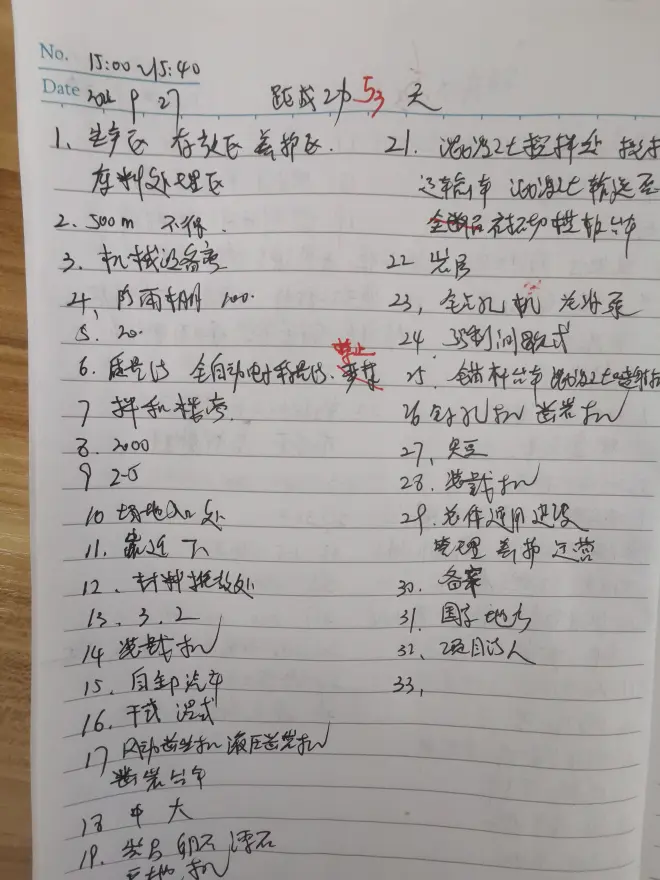 No. 15:00~15:40
Date 9 27 距成功53天
1、生产区 存放区 养护区.
存料处理区
2. 500m 不得.
3. 机械设备
4、防雨棚 100.
5. 20.
6. 质量法 全自动电子称量法. 禁止
7 拌和楼
8. 2000
9 2-5
10 场地入口处
11. 靠近下
12、材料堆放处
13. 3. 2
14 装载机
15. 自卸汽车
16. 干式 湿式
17 风动凿岩机 液压凿岩机
凿岩台车
18 中 大
19. 卵石 漂石
21. 混凝土搅拌处
运输车 混凝土输送泵
衬砌模板台车
22 岩层
23, 钻孔机 注浆泵
24 强制间歇式
25. 锚杆台车 混凝土喷射
26 钻孔机 凿岩机
27、
28. 装载机
29. 总体 通用 建设
管理 养护 运营
30. 备案
31. 国家 地方
32、项目法人
33,